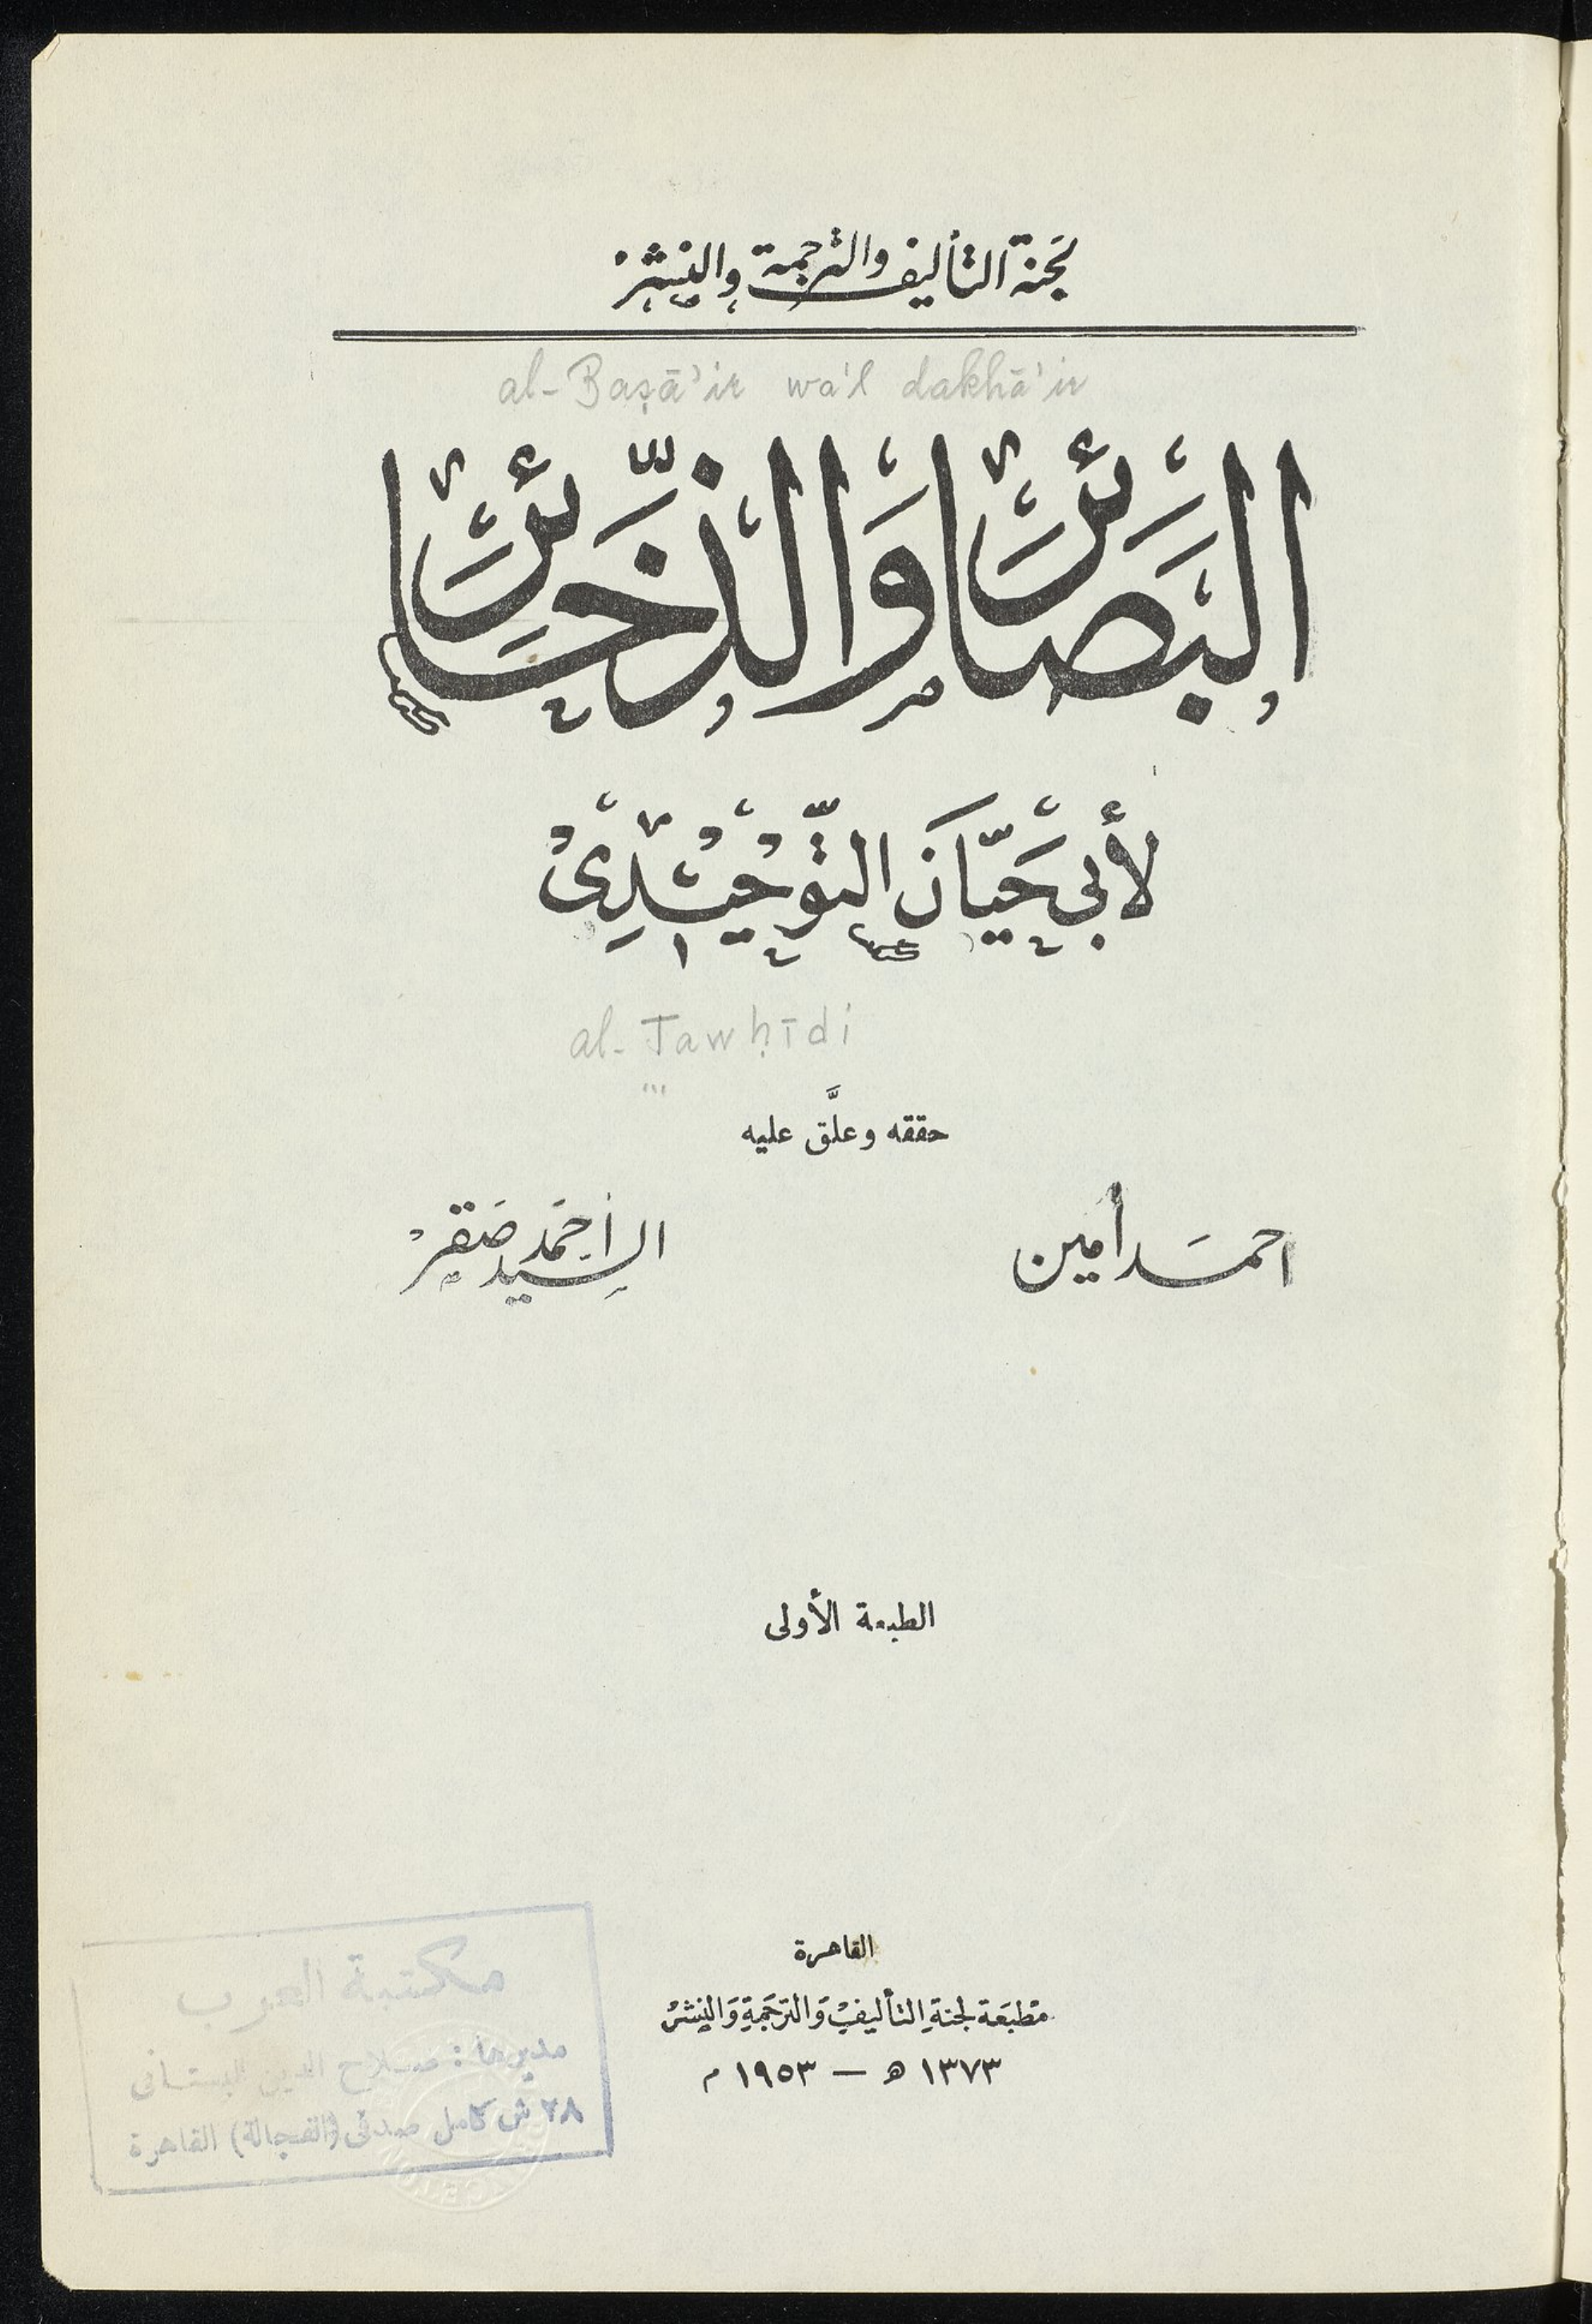 لجنة التأليف والترجمة والنشر
al-Baṣā'ir wa'l dakhā'ir
البَصَائِرُ وَالذَّخَائِرُ
لأبي حَيَّانَ التَّوْحِيْدِىْ
al-Tawḥīdi
حققه وعلَّق عليه
احمد أمين
السيد أحمد صقر
الطبعة الأولى
القاهرة
مطبعة لجنة التأليف والترجمة والنشر
١٣٧٣ ه — ١٩٥٣ م
مكتبة العرب
مديرها : صلاح الدين البستانى
٢٨ ش كامل صدقى (الفجالة) القاهرة